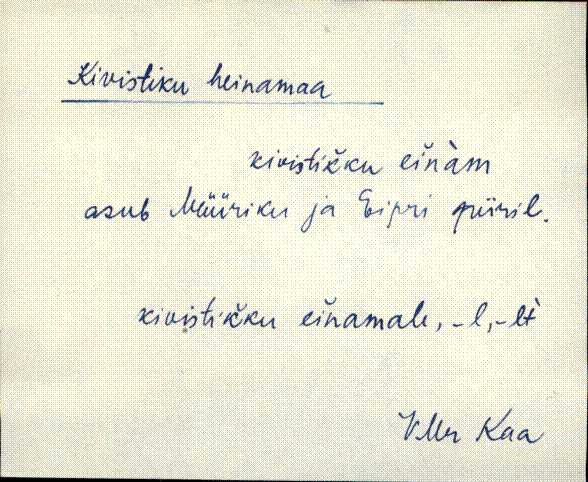 Kivistiku heinamaa
kivistik̆ku eĭnàm
asub Müüriku ja Eipri piiril.
kivistik̆ku eĭnamale, -l, -lt
Kaa